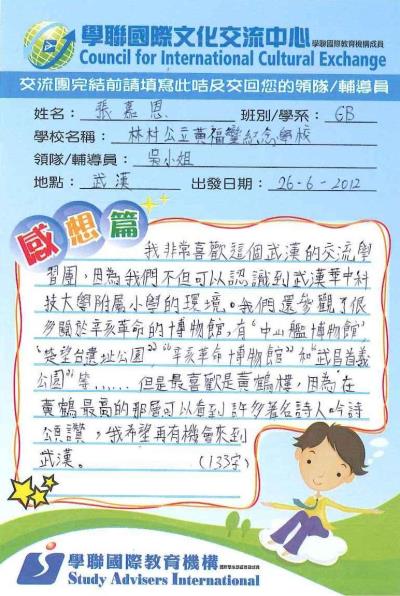 學聯國際文化交流中心 學聯國際教育機構成員
Council for International Cultural Exchange
交流團完結前請填寫此咭及交回您的領隊/輔導員
姓名： 張嘉恩 班別/學系： 6B
學校名稱： 林村公立黃福鑾紀念學校
領隊/輔導員： 吳小姐
地點： 武漢 出發日期： 26-6-2012
感想篇
我非常喜歡這個武漢的交流學
習團，因為我們不但可以認識到武漢華中科
技大學附屬小學的環境。我們還參觀了很
多關於辛亥革命的博物館，有"中山艦博物館"
"磐望台遺址公園""辛亥革命博物館"和"武昌首義
公園"等……但是最喜歡是黃鶴樓，因為在
黃鶴最高的那層可以看到許多著名詩人吟詩
頌讚，我希望再有機會來到
武漢。 (133字)
學聯國際教育機構
Study Advisers International